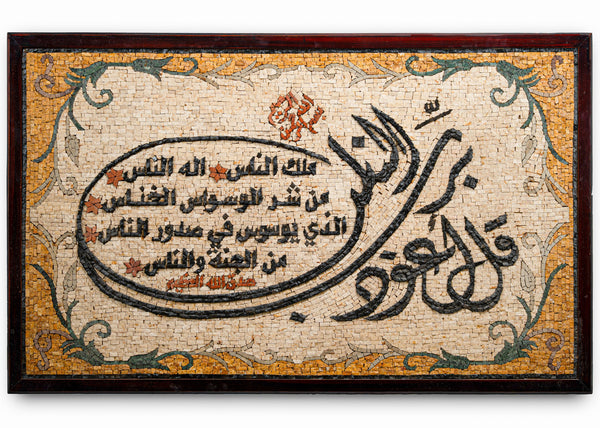 قل أعوذ برب الناس
ملك الناس اله الناس
من شر الوسواس الخناس
الذي يوسوس في صدور الناس
من الجنة والناس
صدق الله العظيم